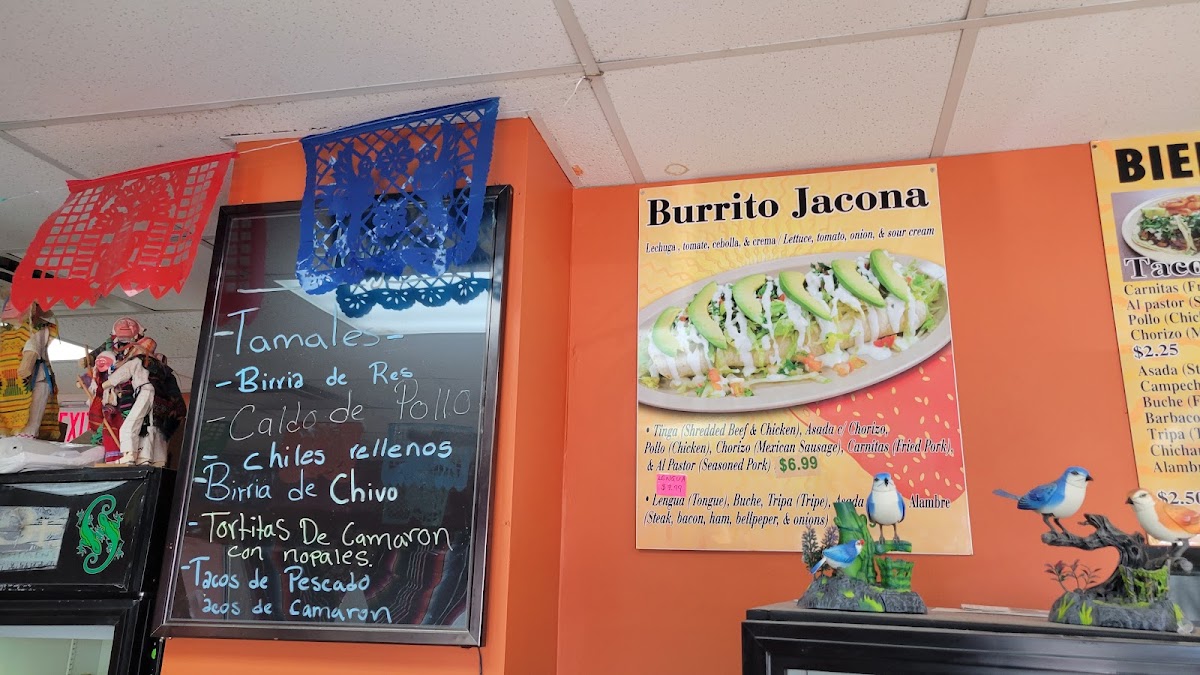 -Tamales-
- Birria de Res
- Caldo de Pollo
- chiles rellenos
- Birria de Chivo
- Tortitas De Camaron
con nopales.
- Tacos de Pescado
acos de Camaron
EXIT
Burrito Jacona
Lechuga , tomate, cebolla, & crema / Lettuce, tomato, onion, & sour cream
• Tinga (Shredded Beef & Chicken), Asada c/ Chorizo,
Pollo (Chicken), Chorizo (Mexican Sausage), Carnitas (Fried Pork),
& Al Pastor (Seasoned Pork) $6.99
LENGUA
$9.99
• Lengua (Tongue), Buche, Tripa (Tripe), Asada Alambre
(Steak, bacon, ham, bellpeper, & onions)
BIE
Taco
Carnitas (F
Al pastor (S
Pollo (Chic
Chorizo (
$2.25
Asada (St
Campech
Buche (F
Barbaco
Tripa (T
Chicha
Alamb
$2.50